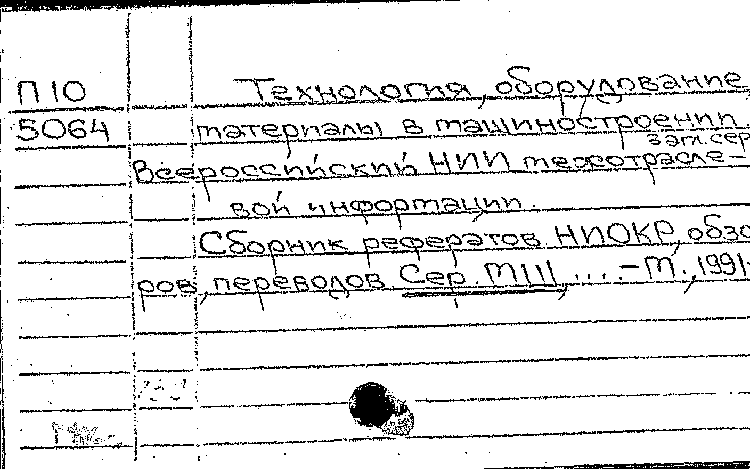 П10
5064
Технология, оборудование,
материалы в машиностроении.
заг. сер.
Всероссийский НИИ межотрасле-
вой информации.
Сборник рефератов НИОКР, обзо
ров, переводов Сер. МШ ....-М., 1991-